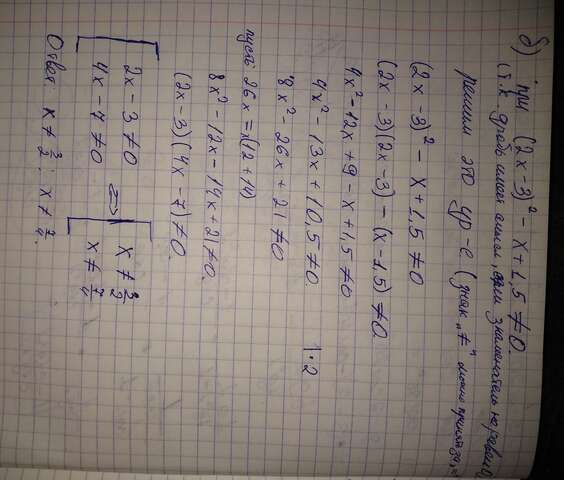 б) при (2x - 3)² - x + 1,5 ≠ 0.
(т.к. дробь имеет смысл, если знаменатель не равен 0)
решим это ур-е (знак "≠" можно принять за "=")
(2x - 3)² - x + 1,5 ≠ 0
(2x - 3)(2x - 3) - (x - 1,5) ≠ 0
4x² - 12x + 9 - x + 1,5 ≠ 0
4x² - 13x + 10,5 ≠ 0. | · 2
8x² - 26x + 21 ≠ 0
пусть 26x = x(12 + 14)
8x² - 12x - 14x + 21 ≠ 0.
(2x - 3)(4x - 7) ≠ 0.
[ 2x - 3 ≠ 0 <=> [ x ≠ 3/2
4x - 7 ≠ 0 x ≠ 7/4
Ответ: x ≠ 3/2; x ≠ 7/4.